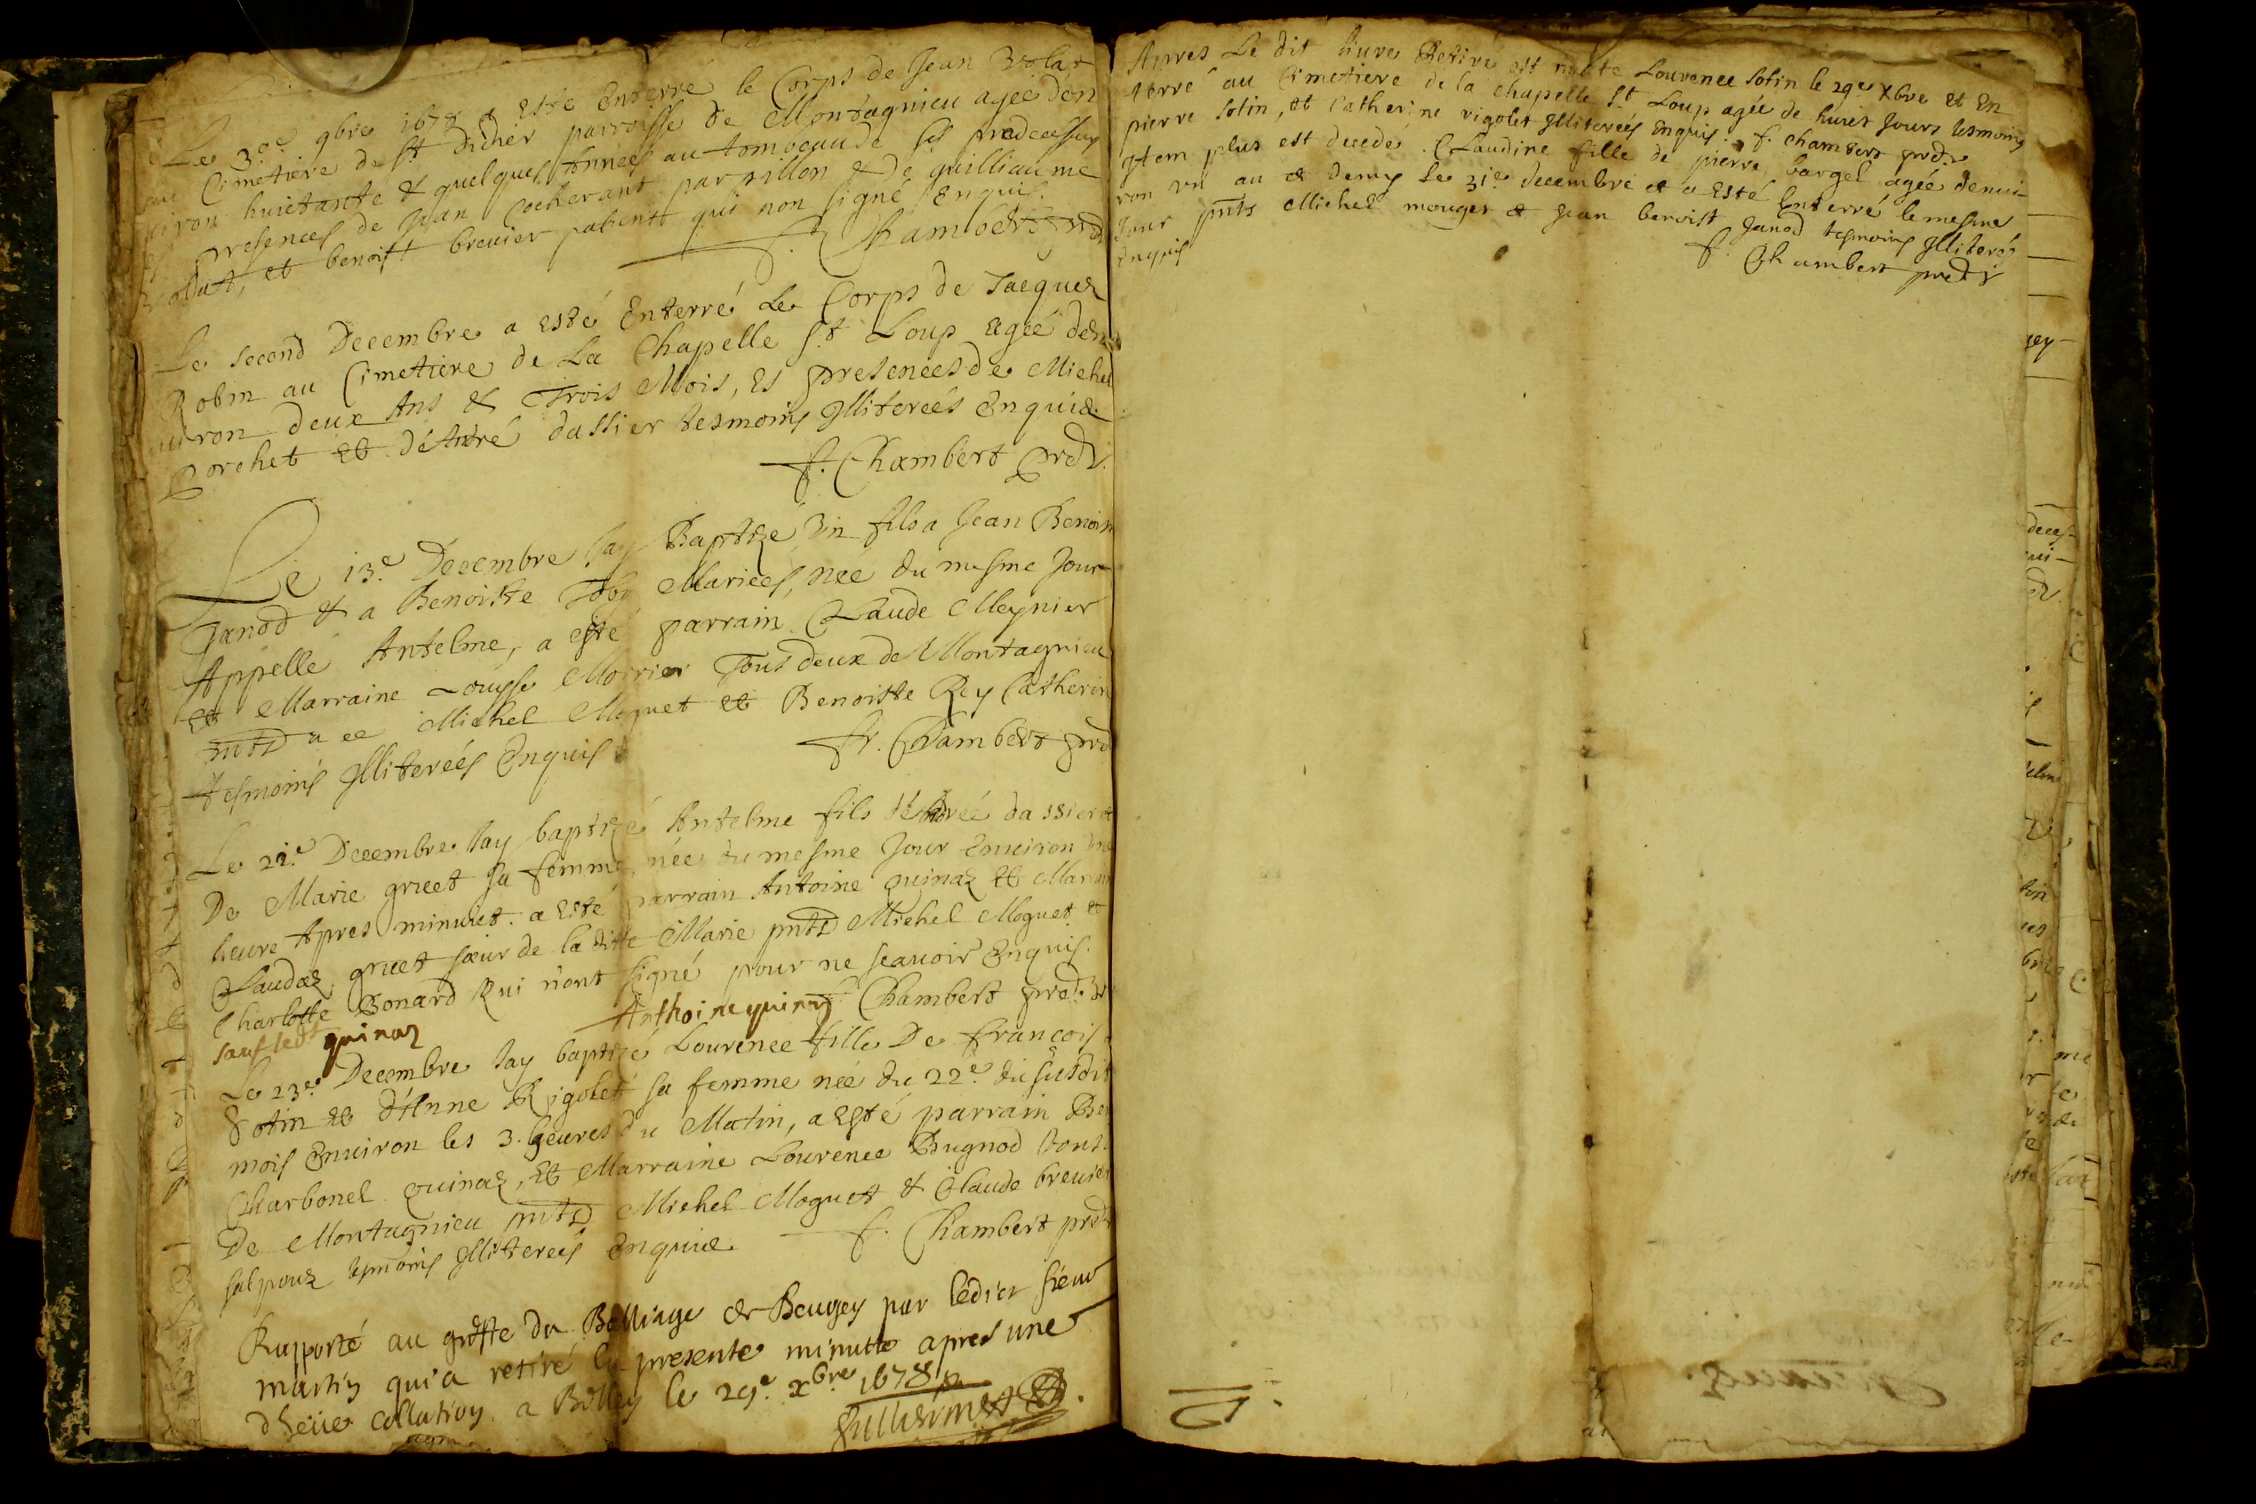 Le 30e 9bre 1678 a Esté Enterré le Corps de Jean
au Cimetiere de St didier parroisse de Montagnieu agée d'en
uiron huictante & quelques Années au tombeau de ses predecesseurs
Es presences de Jean Cocherant par sillon & de guilliaume
et benoist breuier patients qui non signé Enquis.
f. Chambert
Le second Decembre a esté Enterré Le Corps de Jacques
Robin au Cimetiere de La Chapelle St Loup agée d'en
uiron deux Ans & Trois Mois, Es presences de Michel
Porchet et d'André dassier tesmoins Illiterées Enquis
f. Chambert
Le 13e Decembre Jay Baptizé Un fils a Jean Benoist
Janod & a Benoiste Mariées, née du mesme Jour
Appellé Antelme, a esté parrain Claude Meynier
et Marraine Louyse Tous deux de Montagnieu
a ce Michel Moguet et Benoiste Rey Catherin
tesmoins Illiterées Enquis
fr. Chambert
Le 21e Decembre Jay baptizé Antelme fils d'André dassier et
De Marie gruet sa femme née du mesme Jour Enuiron une
heure Apres minuict. a Esté parrain Antoine quinaz et
Claudaz gruet sœur de la ditte Marie pnts Michel Moguet et
Charlotte Bonard Qui n'ont signé pour ne scauoir Enquis.
sauf ledt quinaz Anthoine quinaz f. Chambert
Le 23e Decembre Jay baptizé Lourence fille De françois
Sotin et d'Anne Rigolet sa femme née du 22e du susdit
mois Enuiron les 3. heures du Matin, a Esté parrain
Charbonel quinaz, et Marraine Lourence Bugnod tous
De Montagnieu pnts Michel Moguet & Claude breuier
tesmoins Illiterées Enquis
f. Chambert
Rapporté au greffe du Balliage de Beugey par ledict sieur
martin qui a retiré la presente minutte apres une
dheüe collation a Belley le 29e xbre 1678
Apres Le dit liure Retiré est Lourence Sotin le 29e Xbre et En
terré au Cimetiere de la chapelle St Loup agée de huict Jours tesmoins
pierre Sotin, et Catherine rigolet Illiterées Enquis. f. Chambert
Item plus est decedé Claudine fille de pierre bargel agée denui
ron un an & demy le 31e decembre et a Esté Enterré le mesme
Jour pnts Michel mouget & Jean benoist Janod tesmoins Illiterés
Enquis
f. Chambert